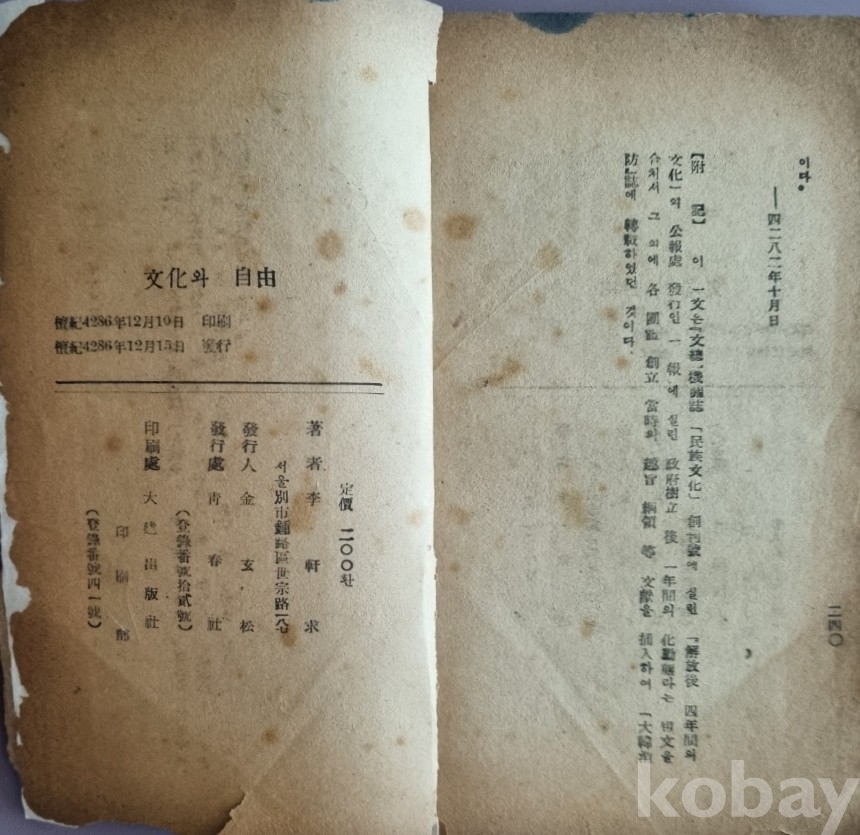 이다。
——四二八二年十月日
【附記】 이 一文은 「文總」機關誌 「民族文化」 創刊號에 실린 「解放後 四年間의
文化」의 公報處 發行인 一報에 실린 政府樹立 後 一年間의 化動態라는 文을
合처서 그 의에 各 團 創立 當時의 趣旨 綱領 等 文獻을 插入하여 「大韓
에 轉載하였던 것이다。
二四〇
文化와 自由
檀紀4286年12月10日 印刷
檀紀4286年12月15日 發行
定價 二〇〇환
著者 李軒求
서울別市鍾路區世宗路
發行人 金玄松
發行處 靑春社
(登錄番號拾貳號)
印刷處 大建出版社
印刷部
(登錄番號四一號)
kobay